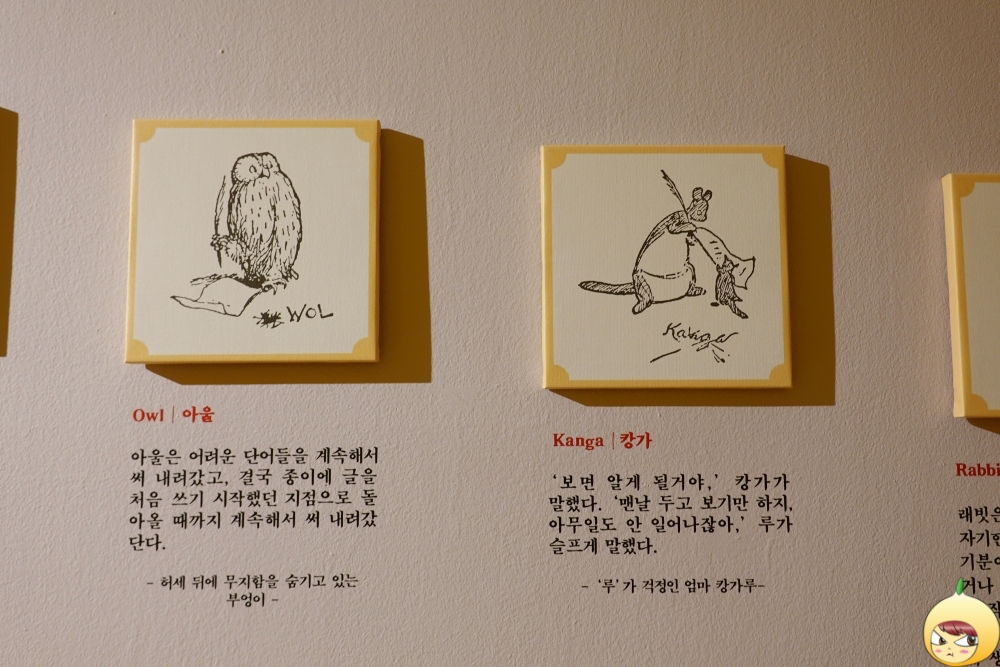 WOL
Owl | 아울
아울은 어려운 단어들을 계속해서
써 내려갔고, 결국 종이에 글을
처음 쓰기 시작했던 지점으로 돌
아올 때까지 계속해서 써 내려갔
단다.
- 허세 뒤에 무지함을 숨기고 있는
부엉이 -
Kanga
Kanga | 캉가
‘보면 알게 될거야,’ 캉가가
말했다. ‘맨날 두고 보기만 하지,
아무일도 안 일어나잖아,’ 루가
슬프게 말했다.
- ‘루’가 걱정인 엄마 캉가루-
Rabbi
래빗은
자기한
기분이
거나